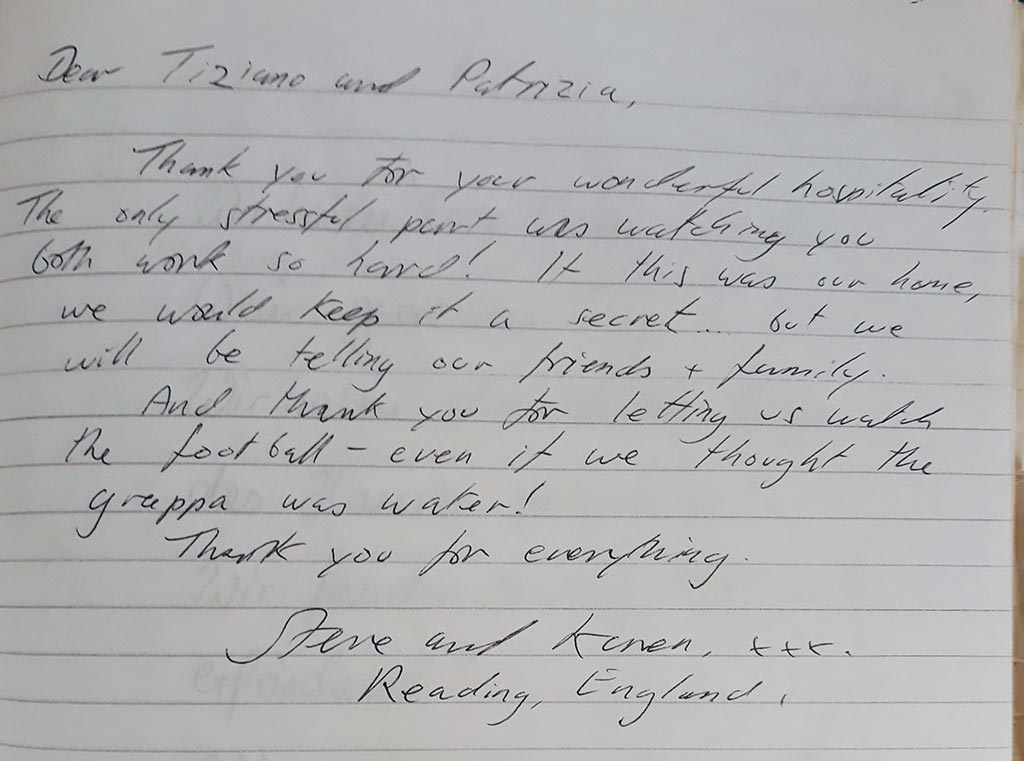 Dear Tiziano and Patrizia,
Thank you for your wonderful hospitality.
The only stressful part was watching you
both work so hard! If this was our home,
we would keep it a secret... but we
will be telling our friends + family.
And thank you for letting us watch
the football - even if we thought the
grappa was water!
Thank you for everything.
Steve and Karen. xxx.
Reading, England.